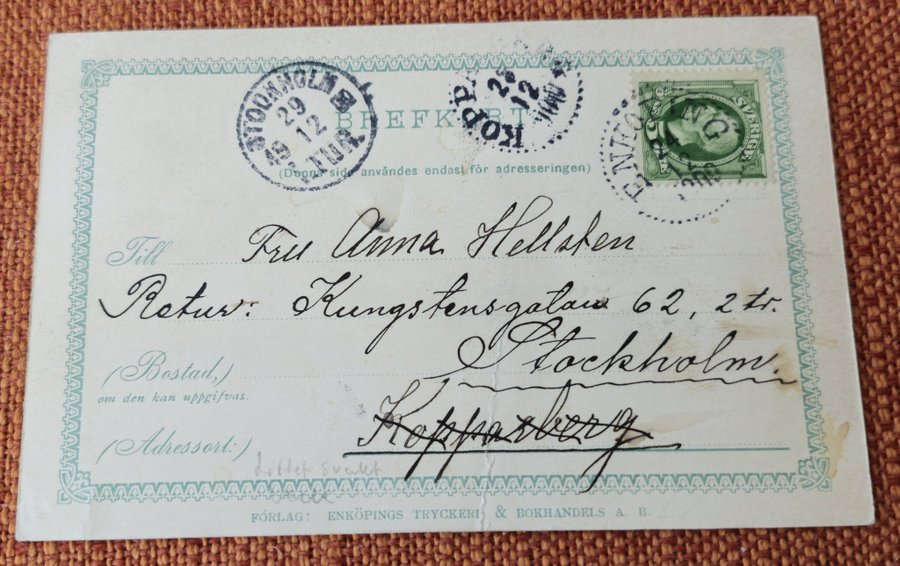 STOCKHOLM
29
12
19
TUR.
KOPP
12
ENKÖPING
SVERIGE
5
BREFKORT
(Denna sida användes endast för adresseringen)
Till Fru Anna Hellsten
Retur: Kungstensgatan 62, 2 tr.
Stockholm.
(Bostad,)
om den kan uppgifvas
Kopparberg
(Adressort:)
FÖRLAG: ENKÖPINGS TRYCKERI & BOKHANDELS A. B.